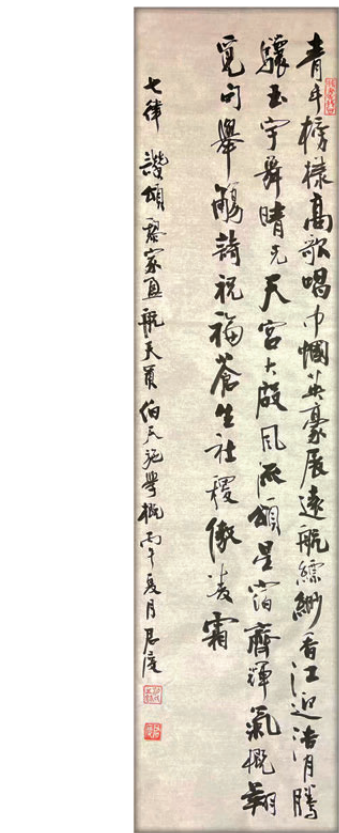 青年榜樣高歌唱巾幗英豪展遠航縹緲香江迎浩月騰
驤玉宇舞晴光天宮大殿風流頌星宿齊輝氣概翔
覓句舉觴詩祝福蒼生社稷傲凌霜
七律 讚頌黎家盈航天員 丙午夏月